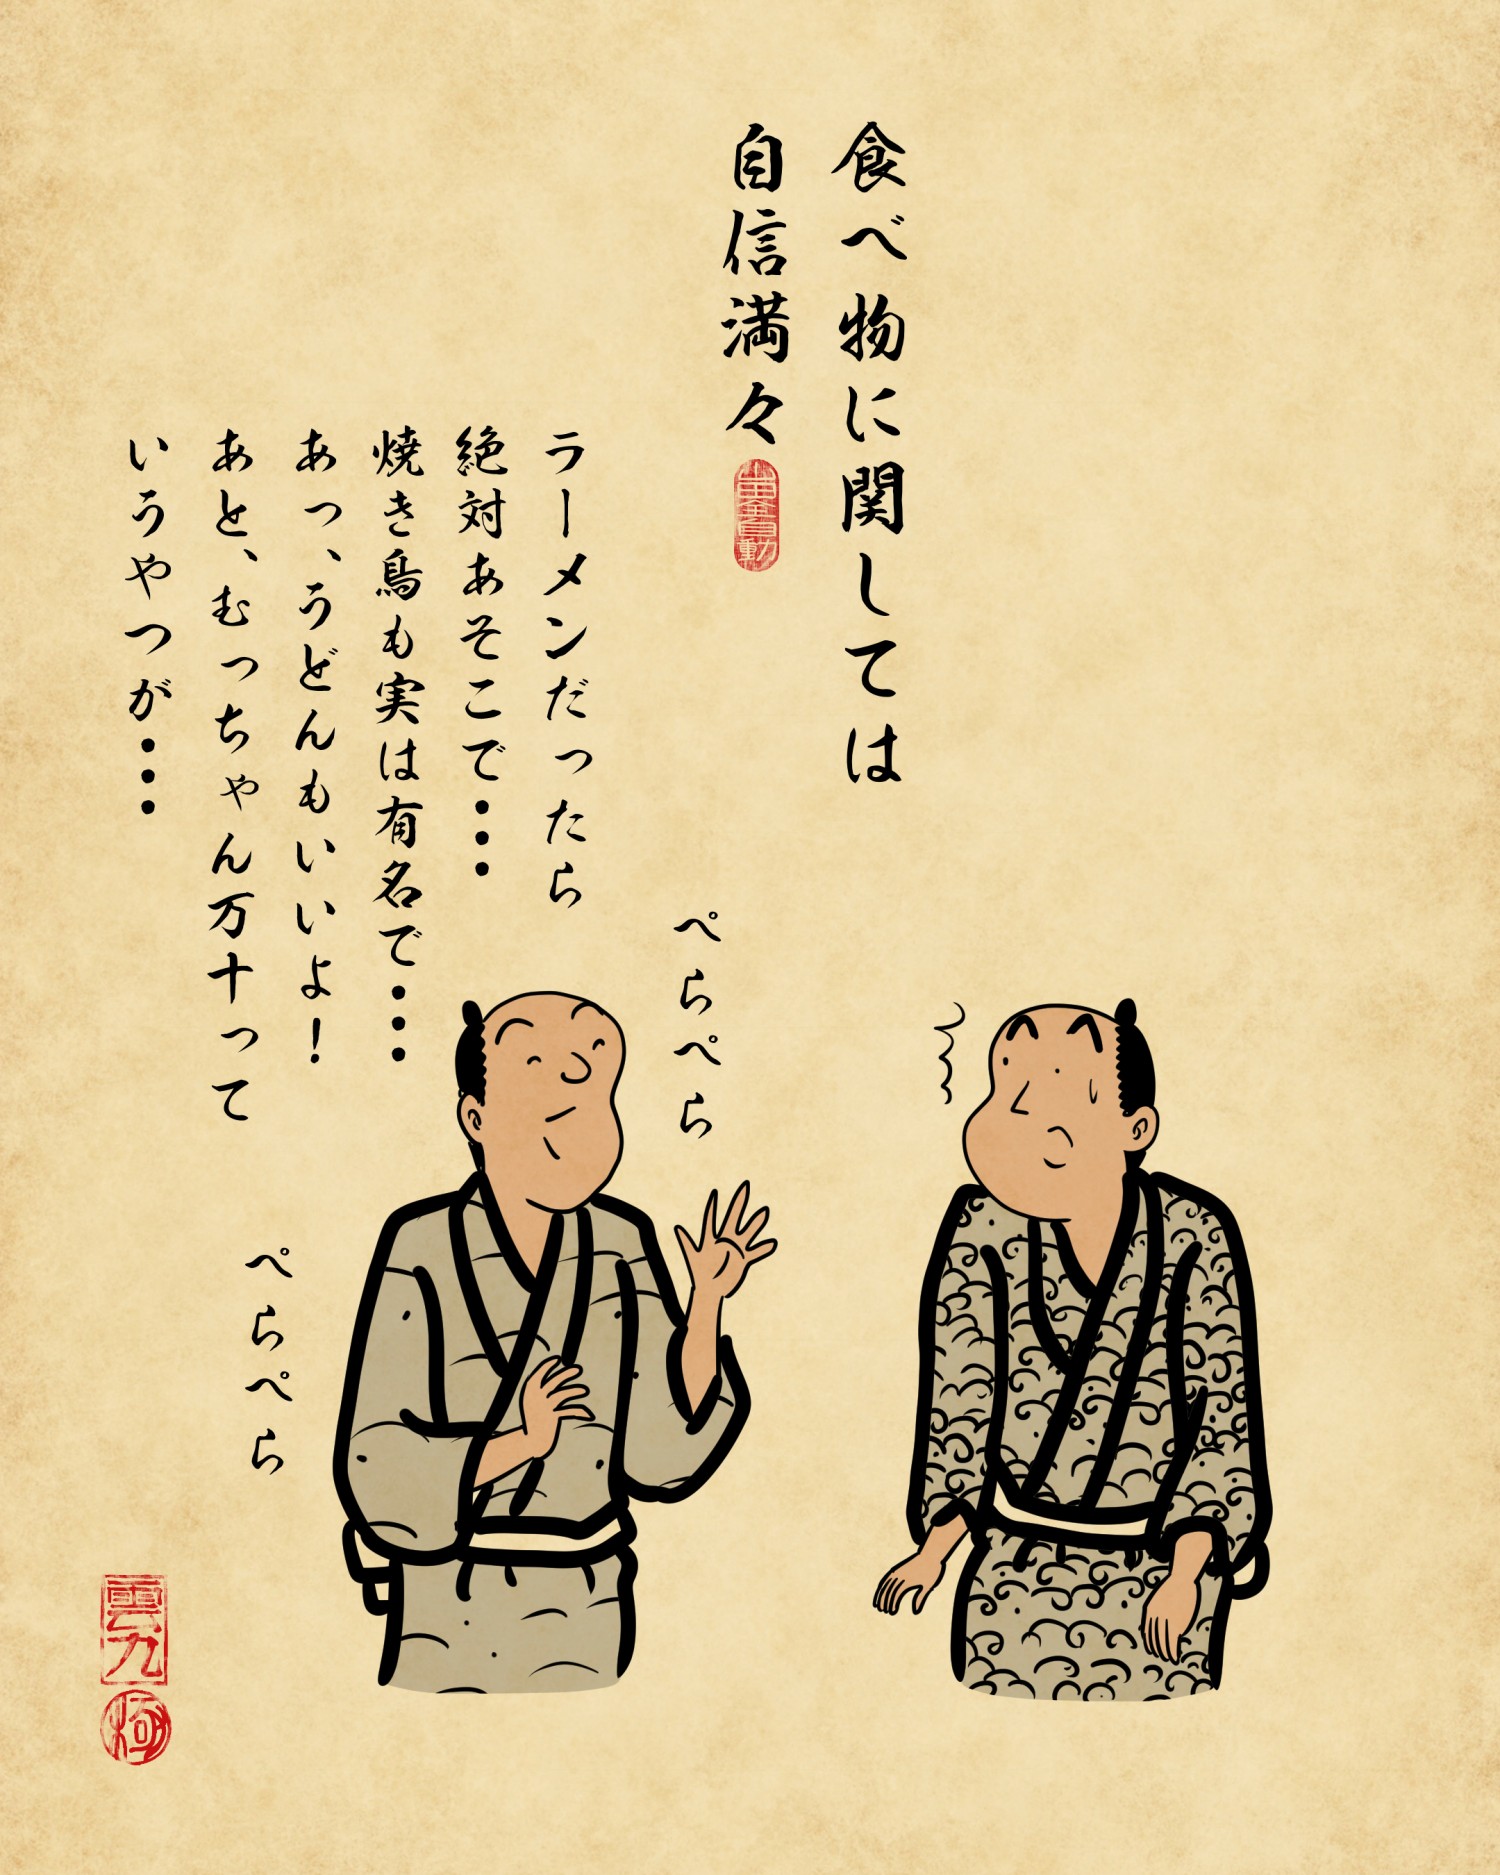 食べ物に関しては
自信満々
ラーメンだったら
絶対あそこで・・・
焼き鳥も実は有名で・・・
あっ、うどんもいいよ！
あと、むっちゃん万十って
いうやつが・・・
ぺらぺら
ぺらぺら